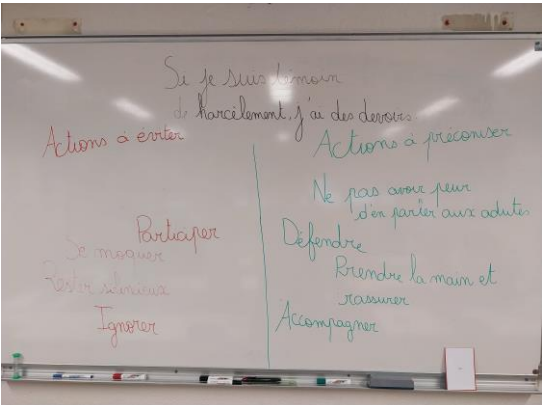 Si je suis témoin
de harcèlement, j'ai des devoirs
Actions à éviter
Participer
Se moquer
Rester silencieux
Ignorer
Actions à préconiser
Ne pas avoir peur
d'en parler aux adultes
Défendre
Prendre la main et
rassurer
Accompagner